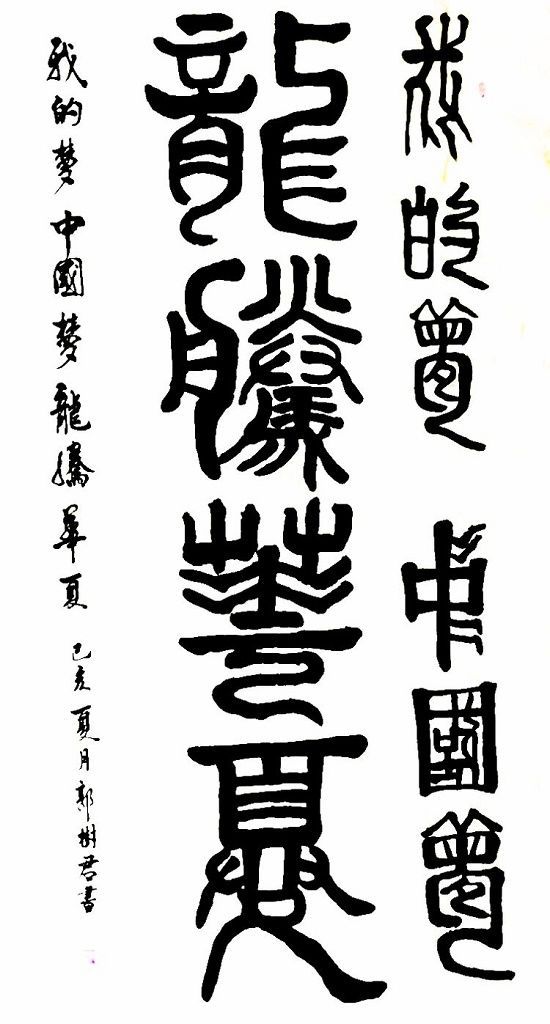 我的夢 中國夢
龍騰華夏
我的夢中國夢龍騰華夏 己亥夏月郭樹君書